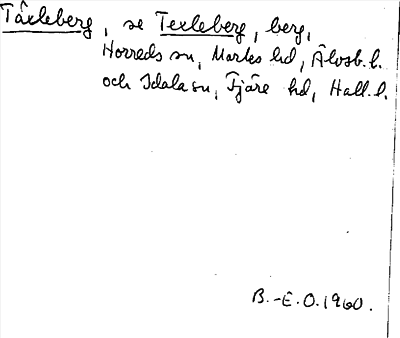 Täxleberg, se Texleberg, berg,
Horreds sn, Marks hd, Älvsb. l.
och Idala sn, Fjäre hd, Hall. l.
B.-E.O. 1960.